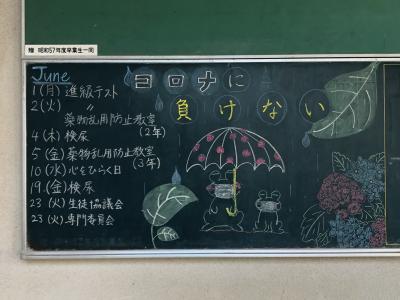 贈 昭和57年度卒業生一同
June
コロナに
負けない
1(月)進級テスト
2(火) 〃
薬物乱用防止教室
(2年)
4(木)検尿
5(金)薬物乱用防止教室
(3年)
10(水)心をひらく日
19(金)検尿
23(火)生徒協議会
23(火)専門委員会